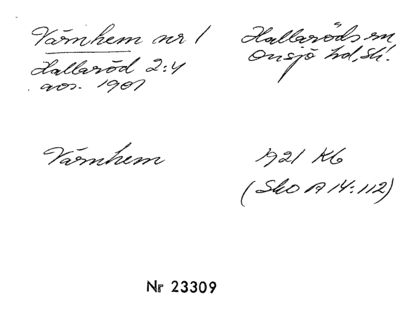 Värnhem nr 1
Hallaröd 2:4
avs. 1907
Hallaröds sn
Onsjö hd, Sk.
Värnhem
1921 K6
(SkO A 14:112)
Nr 23309